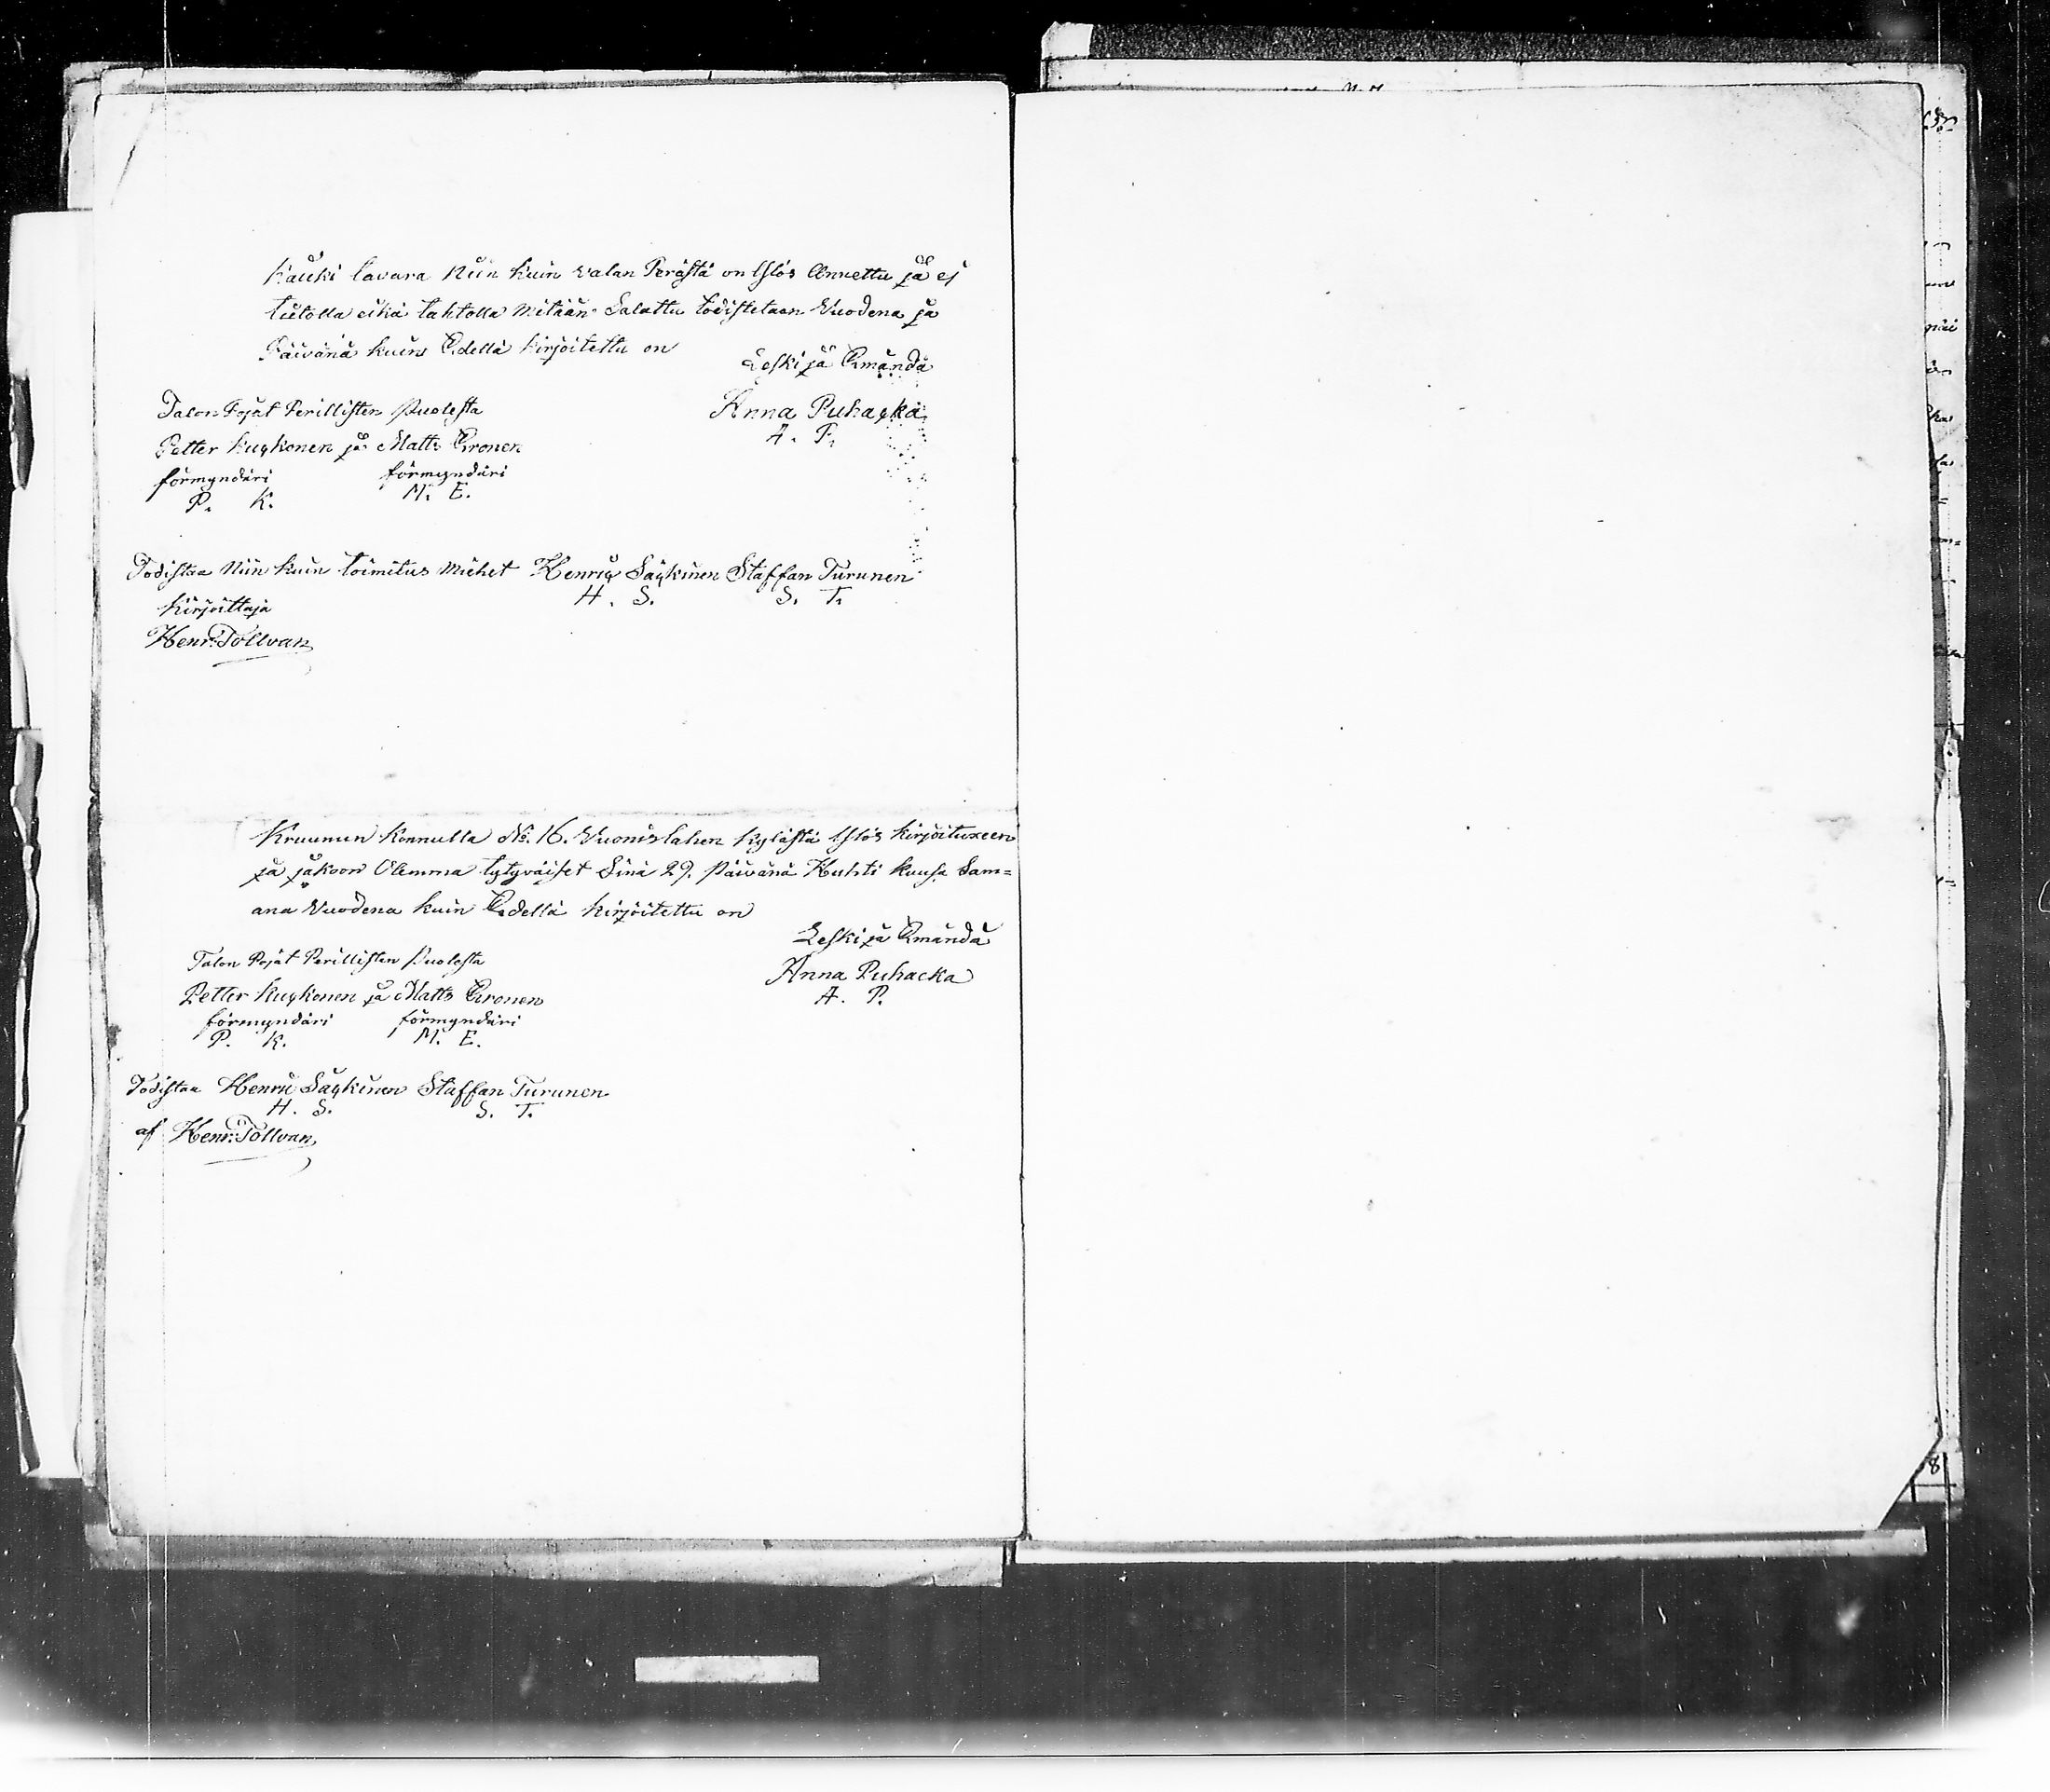 Kauki tavara Niin kuin valan Perästä on Ylös Annettu ja ej
tietolla eikä tahtolla mitään Salattu todistetaan Vuodena ja
Päivänä kuin Edellä kirjoitettu on
Leski ja Emändä
Talon Pojat Perillisten Puolesta
Anna Puhacka
A. P.
Petter Kuckonen ja Matts Eronen
förmyndäri förmyndäri
P. K. M. E.
Todistaa Niin kuin toimitus miehet Henric Säykinen Staffan Turunen
H. S. S. T.
Kirjoittaja
Henr: Tollvan
Kruunun Konnulla No. 16. Vuonislahen Kylästä Ylös kirjoituxeen
ja jakoon Olemma tytyväiset Sinä 29. Päivänä Huhti kuusa Sam=
ana Vuodena kuin Edellä kirjoitettu on
Leski ja Emändä
Talon Pojat Perillisten Puolesta
Anna Puhacka
A. P.
Petter Kuckonen ja Matts Eronen
förmyndäri förmyndäri
P. K. M. E.
Todistaa Henric Säykinen Staffan Turunen
H. S. S. T.
af Henr: Tollvan
8